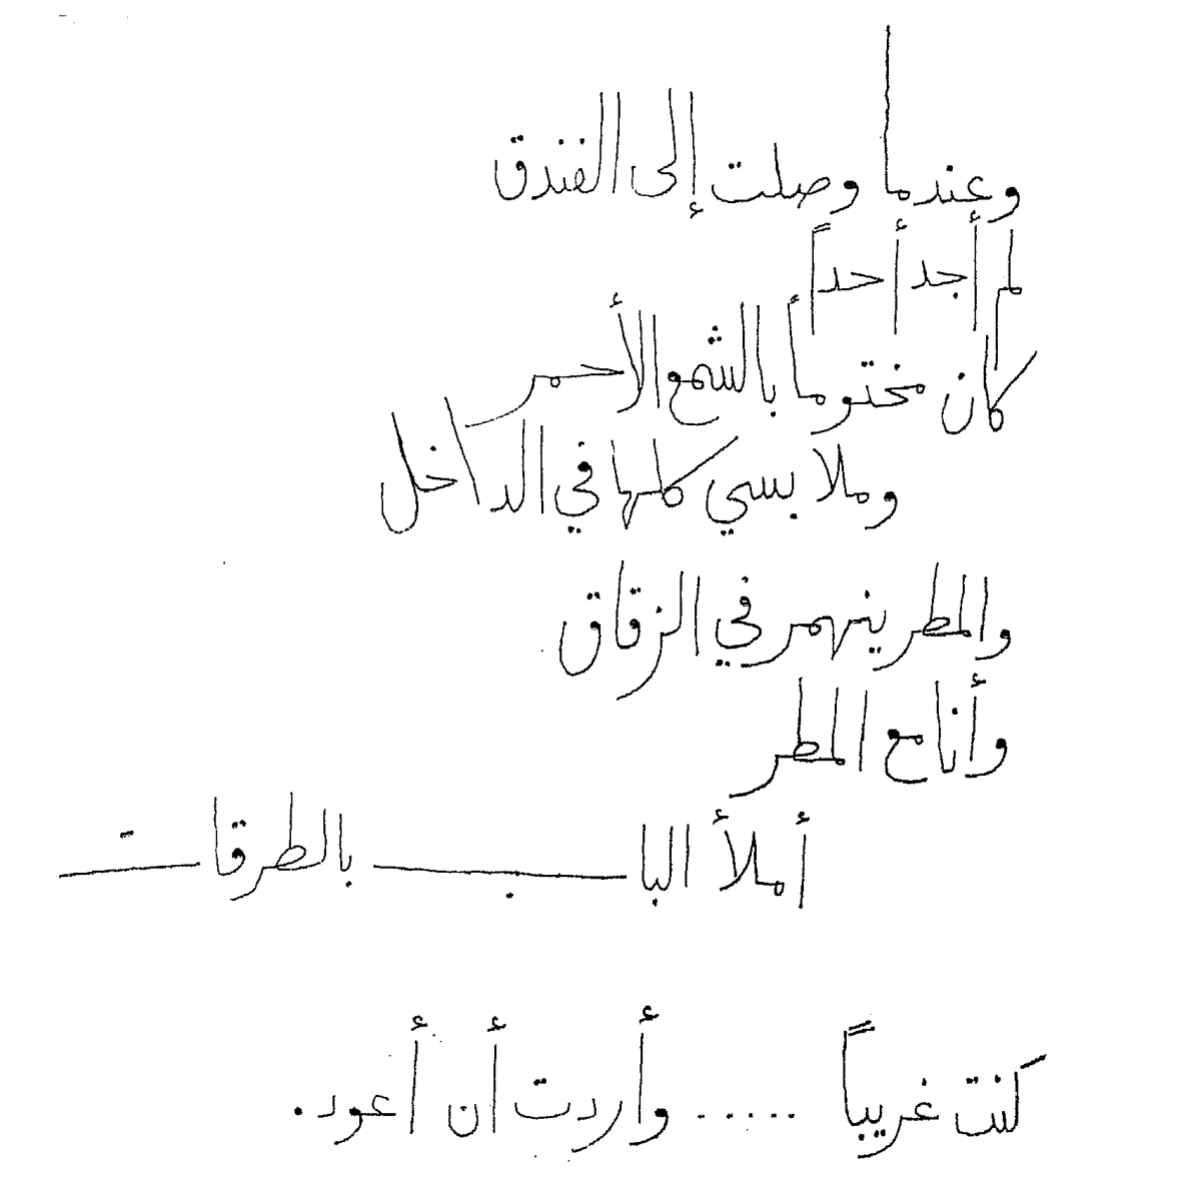 وعندما وصلت إلى الفندق
لم أجد أحداً
كان مختوماً بالشمع الأحمر
وملابسي كلها في الداخل
والمطر ينهمر في الزقاق
وأنا مع المطر
أملأ البـــــــــاب بالطرقات
كنت غريباً ..... وأردت أن أعود.